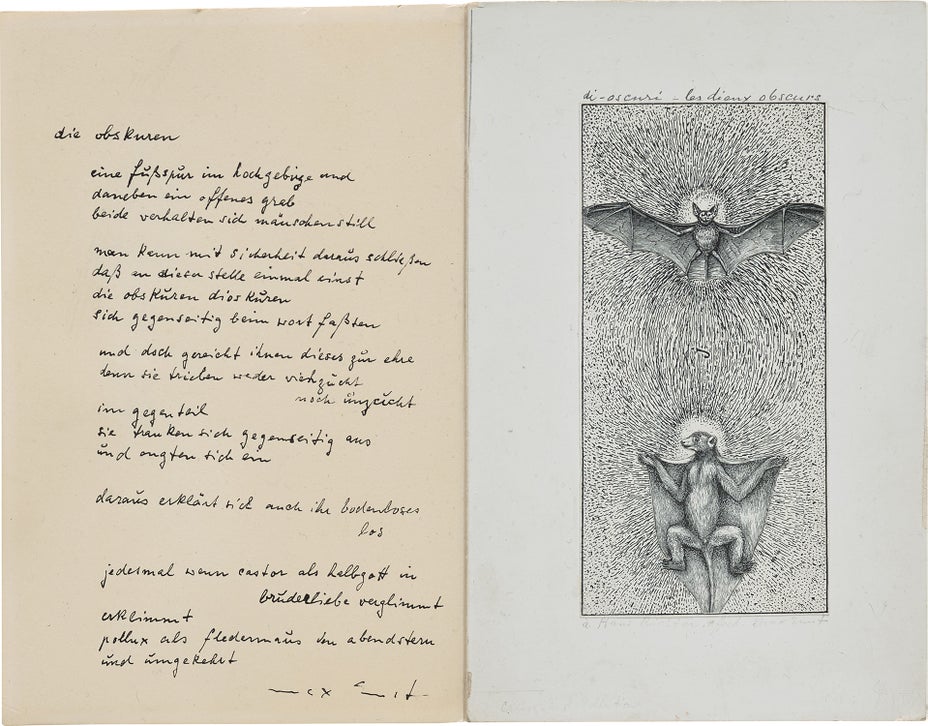 die obskuren
eine fußspur im hochgebirge und
daneben ein offenes grab
beide verhalten sich mäuschenstill
man kann mit sicherheit daraus schließen
daß an dieser stelle einmal einst
die obskuren dioskuren
sich gegenseitig beim wort faßten
und doch gereicht ihnen dieses zur ehre
denn sie trieben weder viehzucht
noch unzucht
im gegenteil
sie tranken sich gegenseitig aus
und engten sich ein
daraus erklärt sich auch ihr bodenloses
los
jedesmal wenn castor als halbgott in
bruderliebe verglimmt
erklimmt
pollux als fledermaus den abendstern
und umgekehrt
max ernst
di-oscuri - les dieux obscurs
a Hans